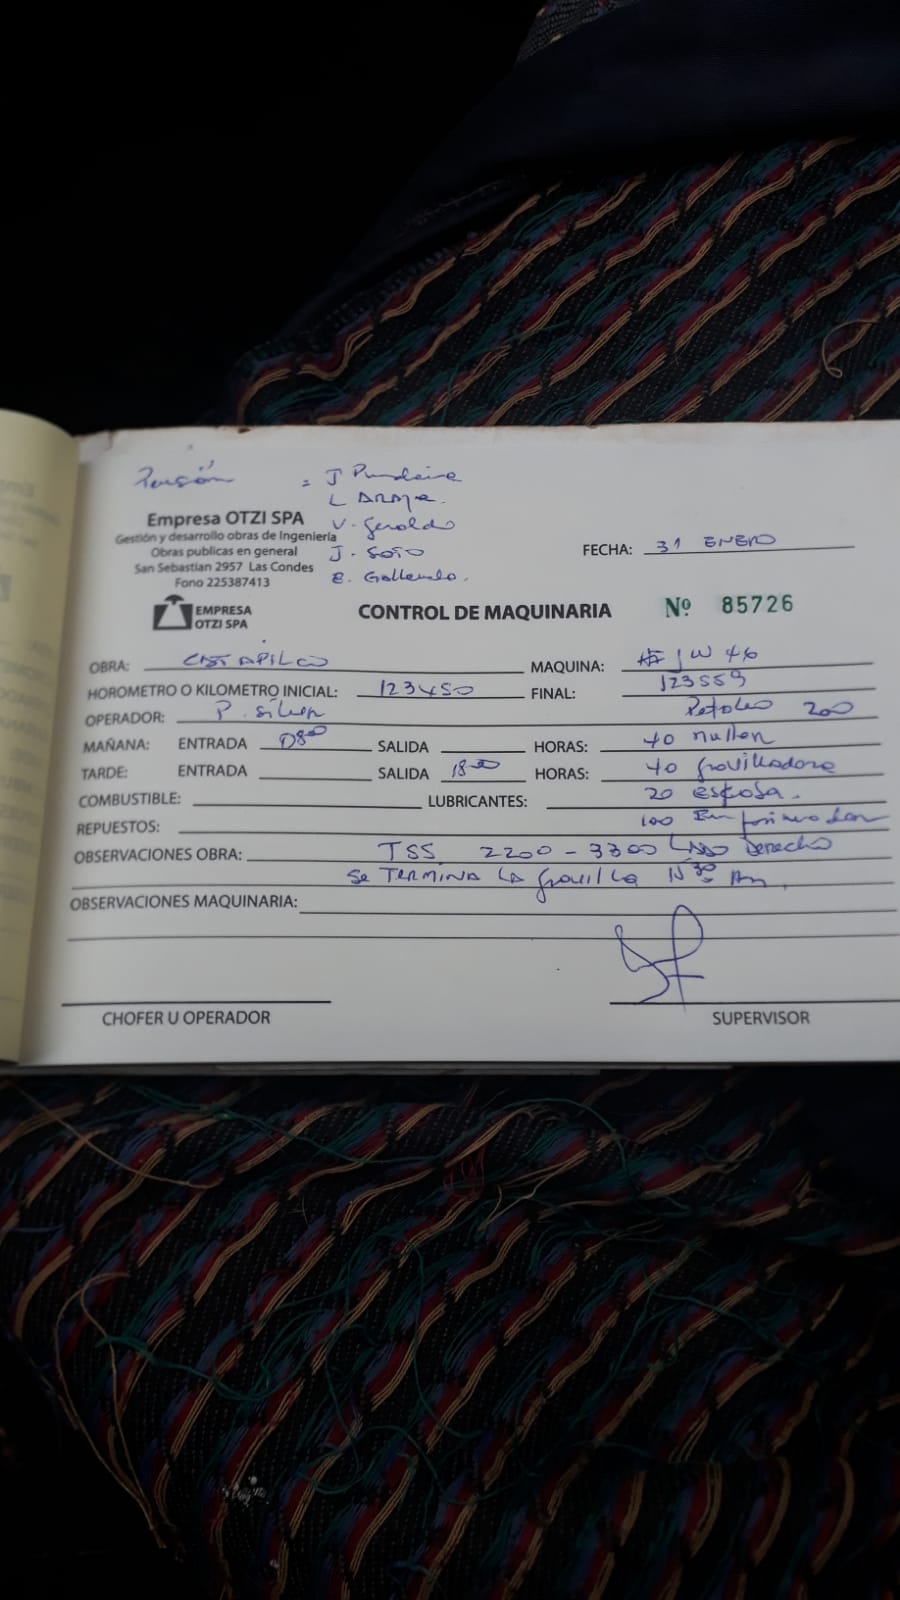 Pensión : J
L ARAYA.
V. Geraldo
J. SOTO
E. Gallardo.
Empresa OTZI SPA
Gestión y desarrollo obras de Ingeniería
Obras publicas en general
San Sebastian 2957 Las Condes
Fono 225387413
FECHA: 31 ENERO
EMPRESA
OTZI SPA
CONTROL DE MAQUINARIA Nº 85726
OBRA: CATAPILCO MAQUINA: JW 46
HOROMETRO O KILOMETRO INICIAL: 123450 FINAL: 123559
OPERADOR: P. Silva Petoleo 200
MAÑANA: ENTRADA 0800 SALIDA HORAS: 40
TARDE: ENTRADA SALIDA 18-00 HORAS: 40 gravilladora
COMBUSTIBLE: LUBRICANTES: 20
REPUESTOS: 100
OBSERVACIONES OBRA: TSS 2200-3300 LADO Derecho
Se TERMINA LA gravilla
OBSERVACIONES MAQUINARIA:
CHOFER U OPERADOR SUPERVISOR